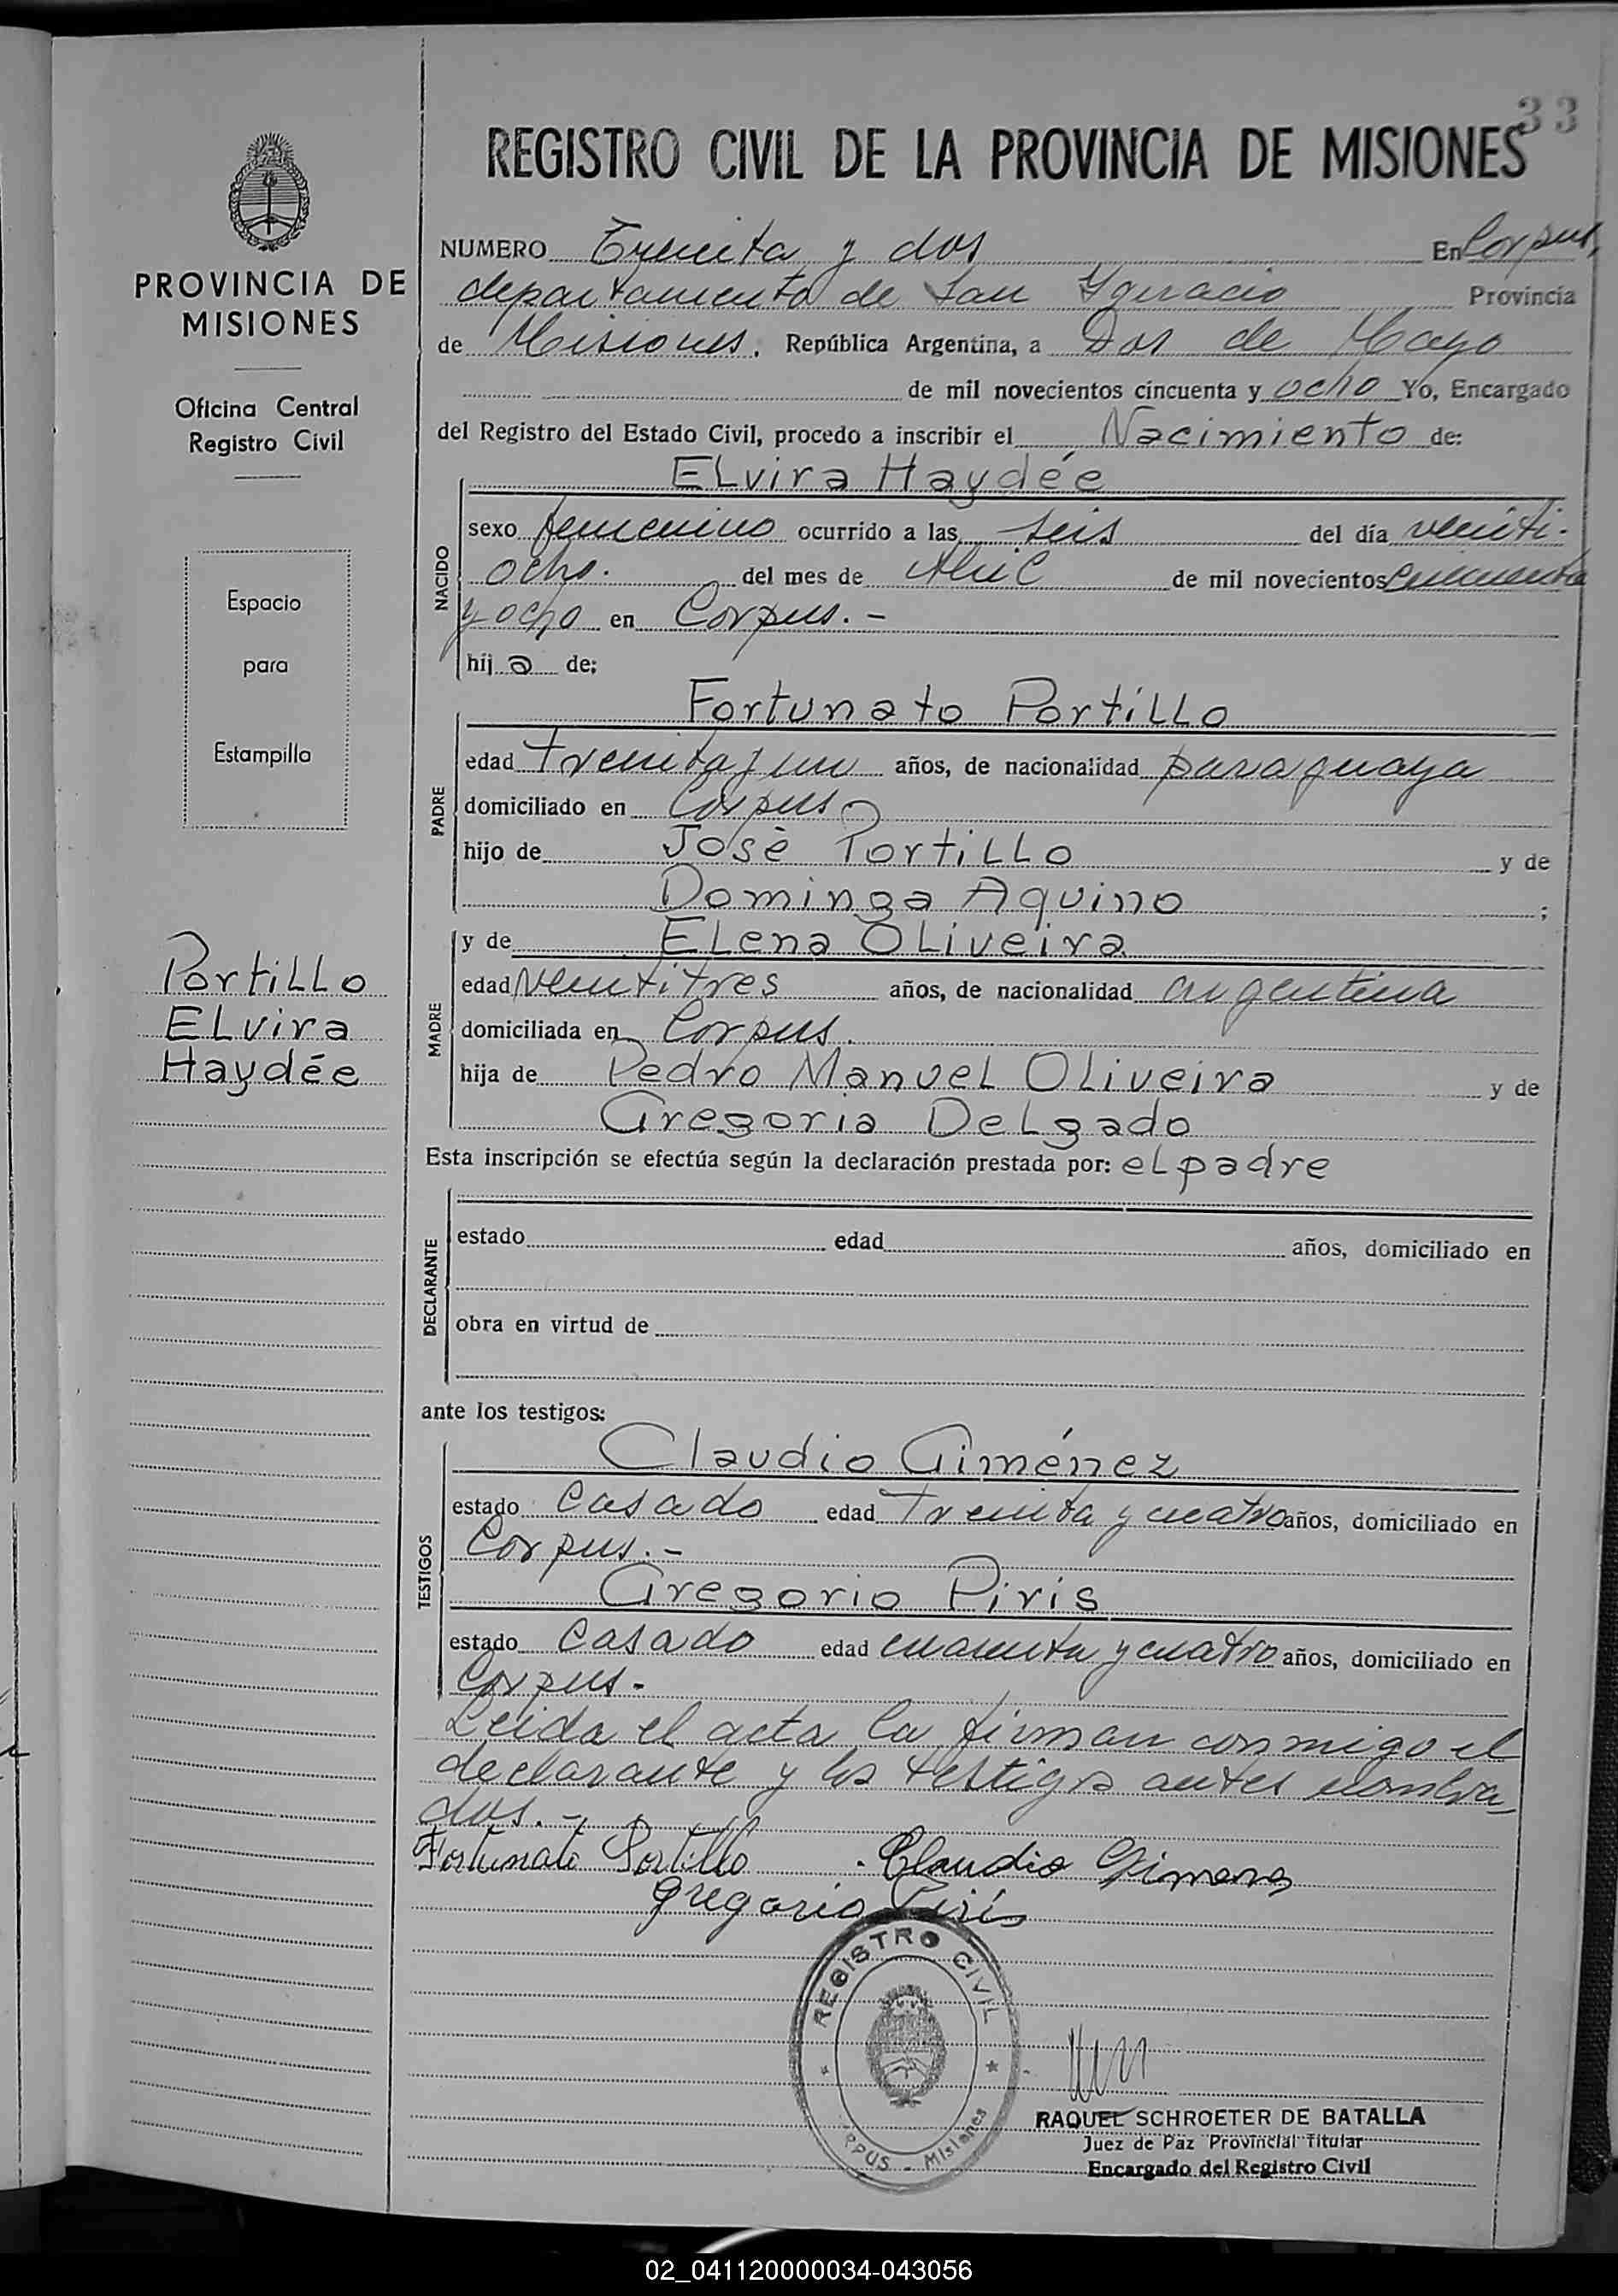 33
REGISTRO CIVIL DE LA PROVINCIA DE MISIONES
PROVINCIA DE
MISIONES
Oficina Central
Registro Civil
Espacio
para
Estampilla
Portillo
Elvira
Haydée
NUMERO Treinta y dos En Corpus,
departamento de San Ygnacio Provincia
de Misiones, República Argentina, a Dos de Mayo
de mil novecientos cincuenta y ocho Yo, Encargado
del Registro del Estado Civil, procedo a inscribir el Nacimiento de:
Elvira Haydée
NACIDO
sexo femenino ocurrido a las seis del día veinti-
ocho. del mes de Abril de mil novecientos cincuenta
y ocho en Corpus.-
hij a de:
Fortunato Portillo
PADRE
edad treinta y un años, de nacionalidad paraguaya
domiciliado en Corpus
hijo de José Portillo y de
Dominga Aquino ;
y de Elena Oliveira
MADRE
edad veintitres años, de nacionalidad argentina
domiciliada en Corpus.
hija de Pedro Manuel Oliveira y de
Gregoria Delgado
Esta inscripción se efectúa según la declaración prestada por: el padre
DECLARANTE
estado edad años, domiciliado en
obra en virtud de
ante los testigos:
Claudio Giménez
TESTIGOS
estado casado edad treinta y cuatro años, domiciliado en
Corpus.-
Gregorio Piris
estado casado edad cuarenta y cuatro años, domiciliado en
Corpus.-
Leida el acta la firman conmigo el
declarante y los testigos antes nombra
dos.-
Fortunato Portillo Claudio Gimenez
Gregorio Piris
REGISTRO CIVIL
RPUS - Misiones
RAQUEL SCHROETER DE BATALLA
Juez de Paz Provincial Titular
Encargado del Registro Civil
02_041120000034-043056